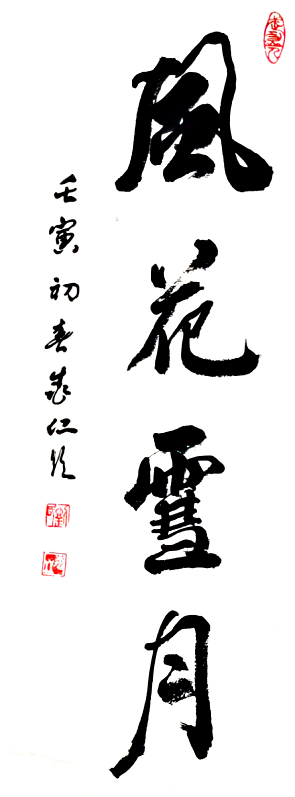 風花雪月
壬寅初春